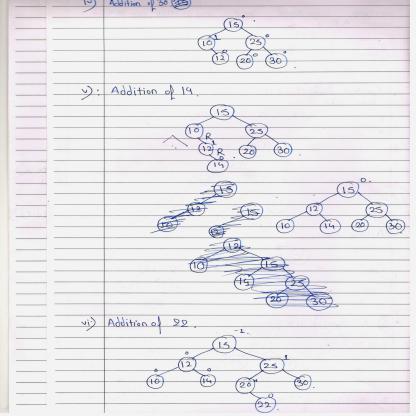 iv) Addition of 30
15
10 25
12 20 30
v): Addition of 14.
15
10 25
R
12 20 30
R
14
15
12 25
10 14 20 30
12
10 15
15 25
20 30
vi) Addition of 22.
15 -1
12 25 1
10 14 20 30
22